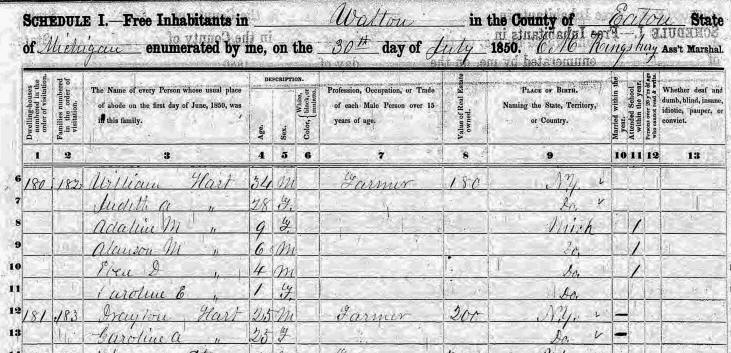 SCHEDULE I.—Free Inhabitants in Walton in the County of Eaton State
of Michigan enumerated by me, on the 30th day of July 1850. Kingsbury Ass't Marshal.
Dwelling-houses numbered in the order of visitation.
Families numbered in the order of visitation.
The Name of every Person whose usual place of abode on the first day of June, 1850, was in this family.
DESCRIPTION.
Age.
Sex.
Color, White, black, or mulatto.
Profession, Occupation, or Trade of each Male Person over 15 years of age.
Value of Real Estate owned.
PLACE OF BIRTH. Naming the State, Territory, or Country.
Married within the year.
Attended School within the year.
Persons over 20 y'rs of age who cannot read & write.
Whether deaf and dumb, blind, insane, idiotic, pauper, or convict.
1 2 3 4 5 6 7 8 9 10 11 12 13
6 180 182 William Hart 34 M Farmer 180 N.Y. ✓
7 Judith A " 28 F Do. ✓
8 Adaline M " 9 F Mich 1
9 Alanson M " 6 M Do. 1
10 D " 4 M Do. 1
11 Caroline E " 1 F Do.
12 181 183 Drayton Hart 25 M Farmer 200 N.Y. ✓ –
13 Caroline A " 25 F Do. ✓ –